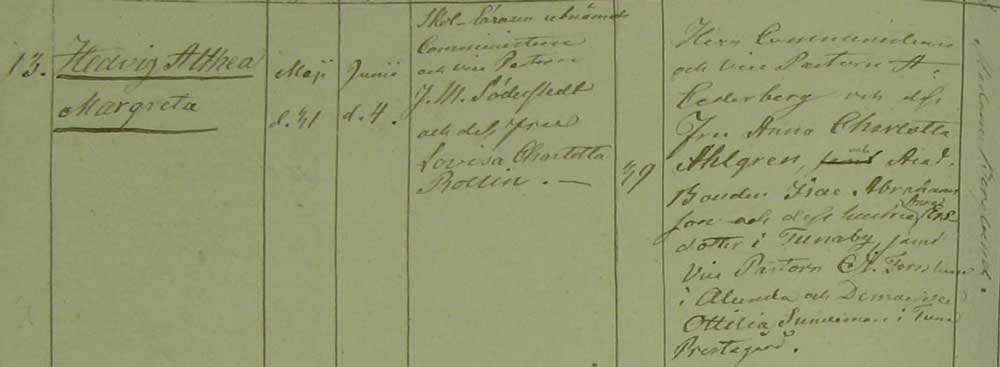 13.
Hedvig Althea
Margreta
Maji
d. 31
Junii
d. 4.
Skol-Läraren utnämnd
Comministern
och vice Pastorn
J. M. Söderstedt
och dess fru
Lovisa Charlotta
Bollin. —
39
Herr Comministern
och Vice Pastorn A.
Cederberg och dess
Fru Anna Charlotta
Ahlgren, samt Acad.
Bonden Isac Abrahams
son och dess hustru Anna Ers
dotter i Tunaby, samt
Vice Pastorn
i Alunda och Demoiselle
Ottilia i Tuna
Prestgård.
Madam